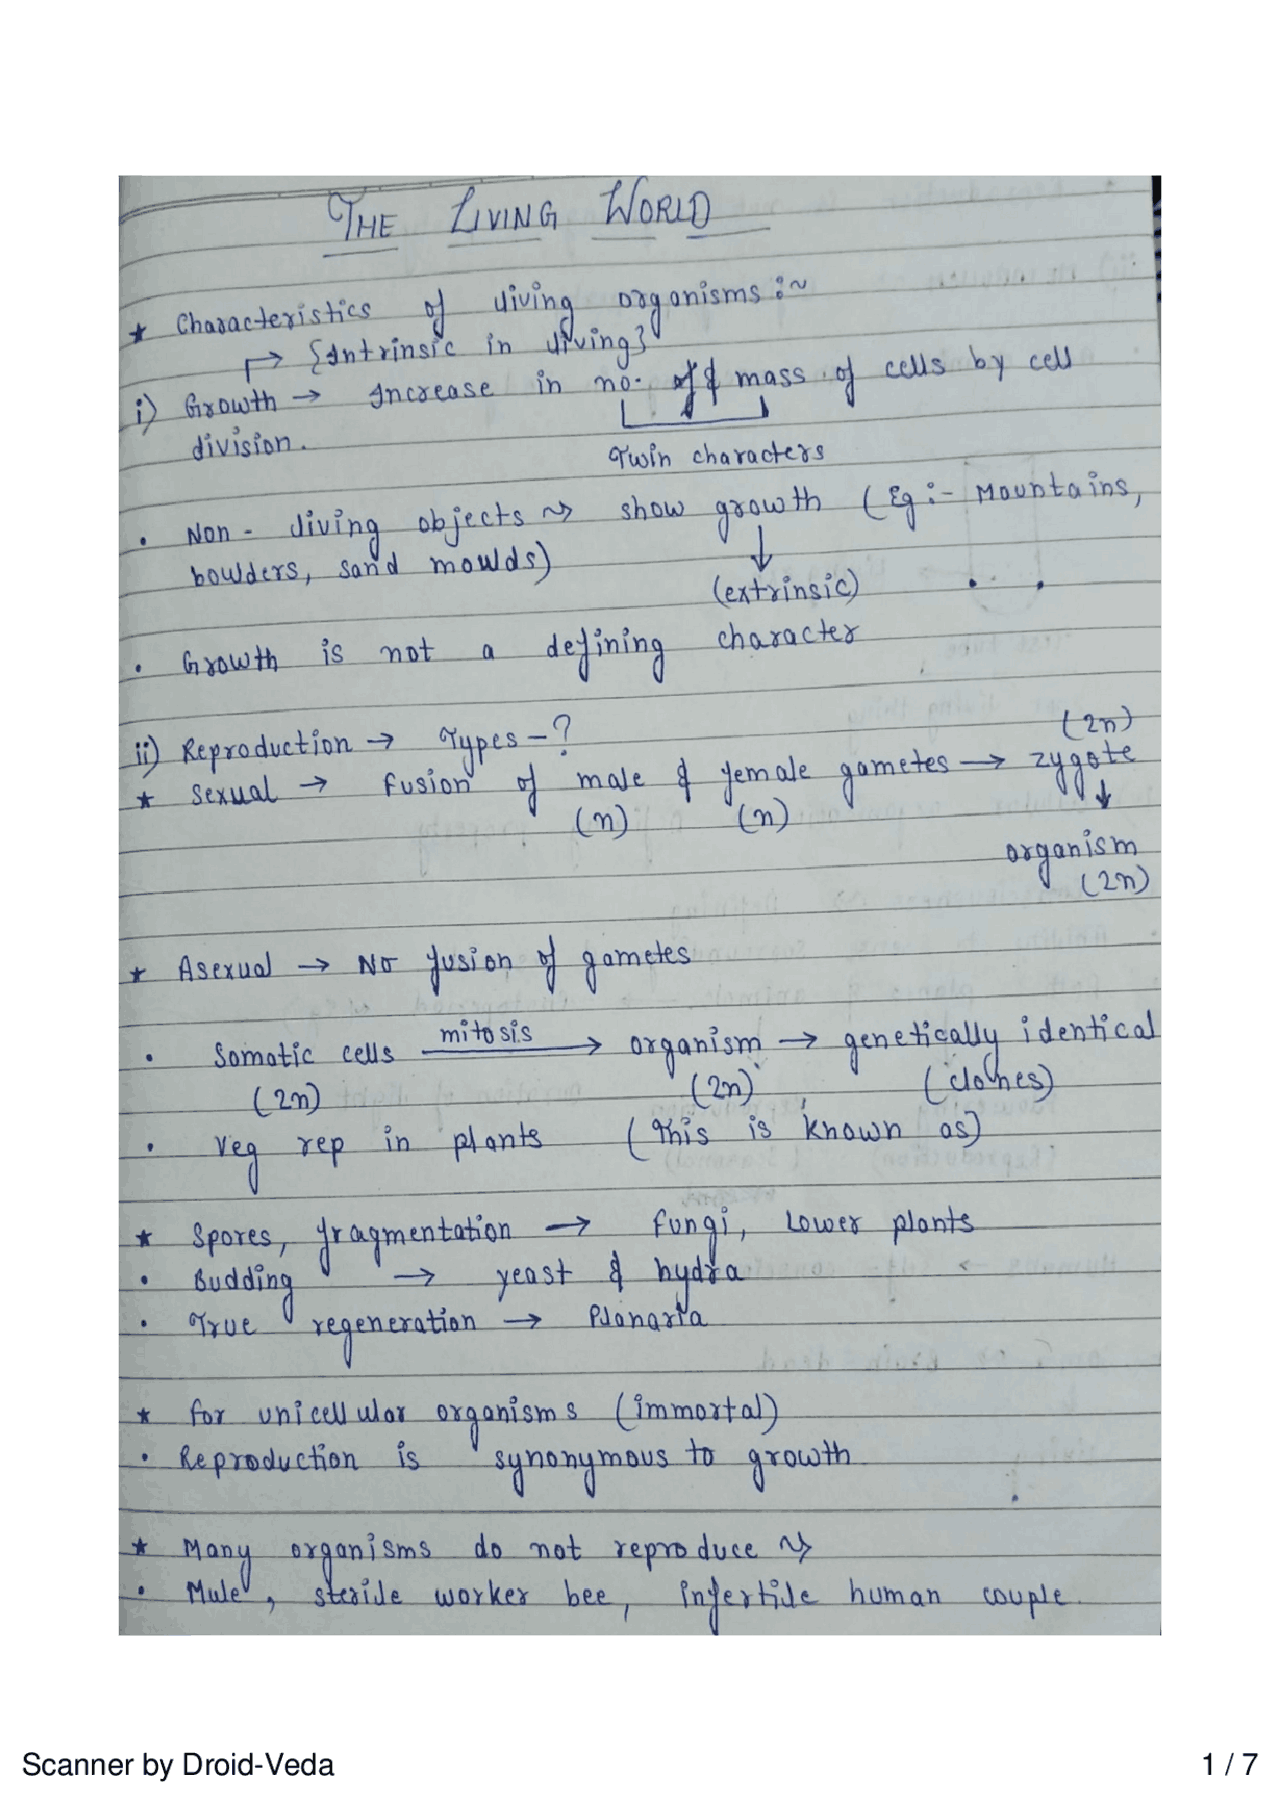 THE LIVING WORLD
* Characteristics of living organisms :~
→ {Intrinsic in living}
i) Growth → Increase in no. & mass of cells by cell
division.
Twin characters
• Non - living objects ~> show growth (Eg :- Mountains,
bowlders, sand moulds)
(extrinsic)
• Growth is not a defining character
ii) Reproduction → Types - ?
(2n)
* Sexual → fusion of male & female gametes → zygote
(n) (n)
organism
(2n)
* Asexual → No fusion of gametes
• Somatic cells mitosis → organism → genetically identical
(2n) (2n) (clones)
• Veg rep in plants (This is known as)
* Spores, fragmentation → fungi, lower plants
• Budding → yeast & hydra
• True regeneration → Planaria
* for unicellular organisms (immortal)
• Reproduction is synonymous to growth
* Many organisms do not reproduce ~>
• Mule, sterile worker bee, infertile human couple.
Scanner by Droid-Veda 1 / 7